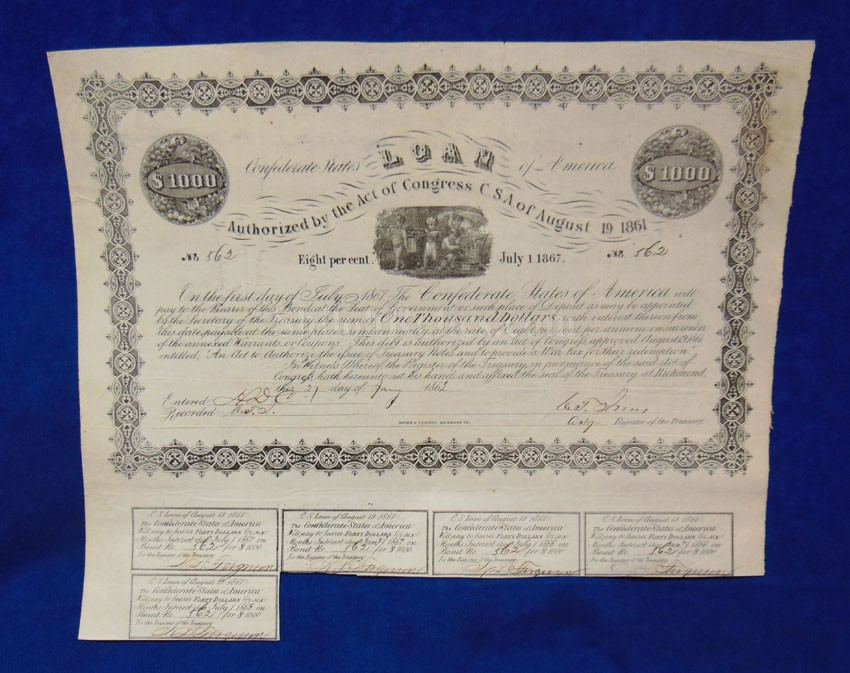 Confederate States LOAN of America
Authorized by the Act of Congress C.S.A of August 19 1861
$1000 $1000
No. 562 Eight per cent. July 1 1867. No. 562
On the first day of July 1867 The Confederate States of America will
pay to the Bearer of this Bond at the Seat of Government or such place of Deposit as may be appointed
by the Secretary of the Treasury the sum of One Thousand Dollars with interest thereon from
this date payable at the same places semi-annually at the rate of Eight per cent per annum on surrender
of the annexed Warrants or Coupons. This debt is authorized by an Act of Congress approved August 19 1861
entitled, "An Act to Authorize the issue of Treasury Notes and to provide a War tax for their redemption"
In Witness Whereof the Register of the Treasury in pursuance of the said Act of
Congress hath hereunto set his hand and affixed the seal of the Treasury at Richmond,
this 27 day of Jany 1862
Entered
Recorded
Register of the Treasury.
C.S. Loan of August 19 1861
The Confederate States of America
Will pay to bearer FORTY DOLLARS for six
Months Interest due July 1
Bond No. 562 for $1000
For the Register of the Treasury
Ferguson
C.S. Loan of August 19 1861
The Confederate States of America
Will pay to bearer FORTY DOLLARS for six
Months Interest due
Bond No. 562 for $1000
For the Register of the Treasury
Ferguson
C.S. Loan of August 19 1861
The Confederate States of America
Will pay to bearer FORTY DOLLARS for six
Months Interest due July 1
Bond No. 562 for $1000
For the Register of the Treasury
Ferguson
C.S. Loan of August 19 1861
The Confederate States of America
Will pay to bearer FORTY DOLLARS for six
Months Interest due
Bond No. 562 for $1000
For the Register of the Treasury
Ferguson
C.S. Loan of August 19 1861
The Confederate States of America
Will pay to bearer FORTY DOLLARS for six
Months Interest due July 1
Bond No. 562 for $1000
For the Register of the Treasury
Ferguson